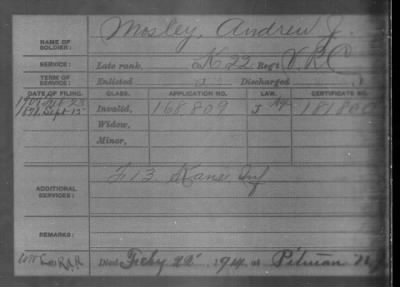 NAME OF SOLDIER: Mosley, Andrew J.
SERVICE: Late rank, K 22 Reg't V.R.C
TERM OF SERVICE: Enlisted Discharged
DATE OF FILING. CLASS. APPLICATION NO. LAW. CERTIFICATE NO.
Invalid, 168809 181808
1871 Sept 15
Widow,
Minor,
ADDITIONAL SERVICES: F 13 Kans Inf
REMARKS:
Died Feby 22 1914 at Pitman N.J.